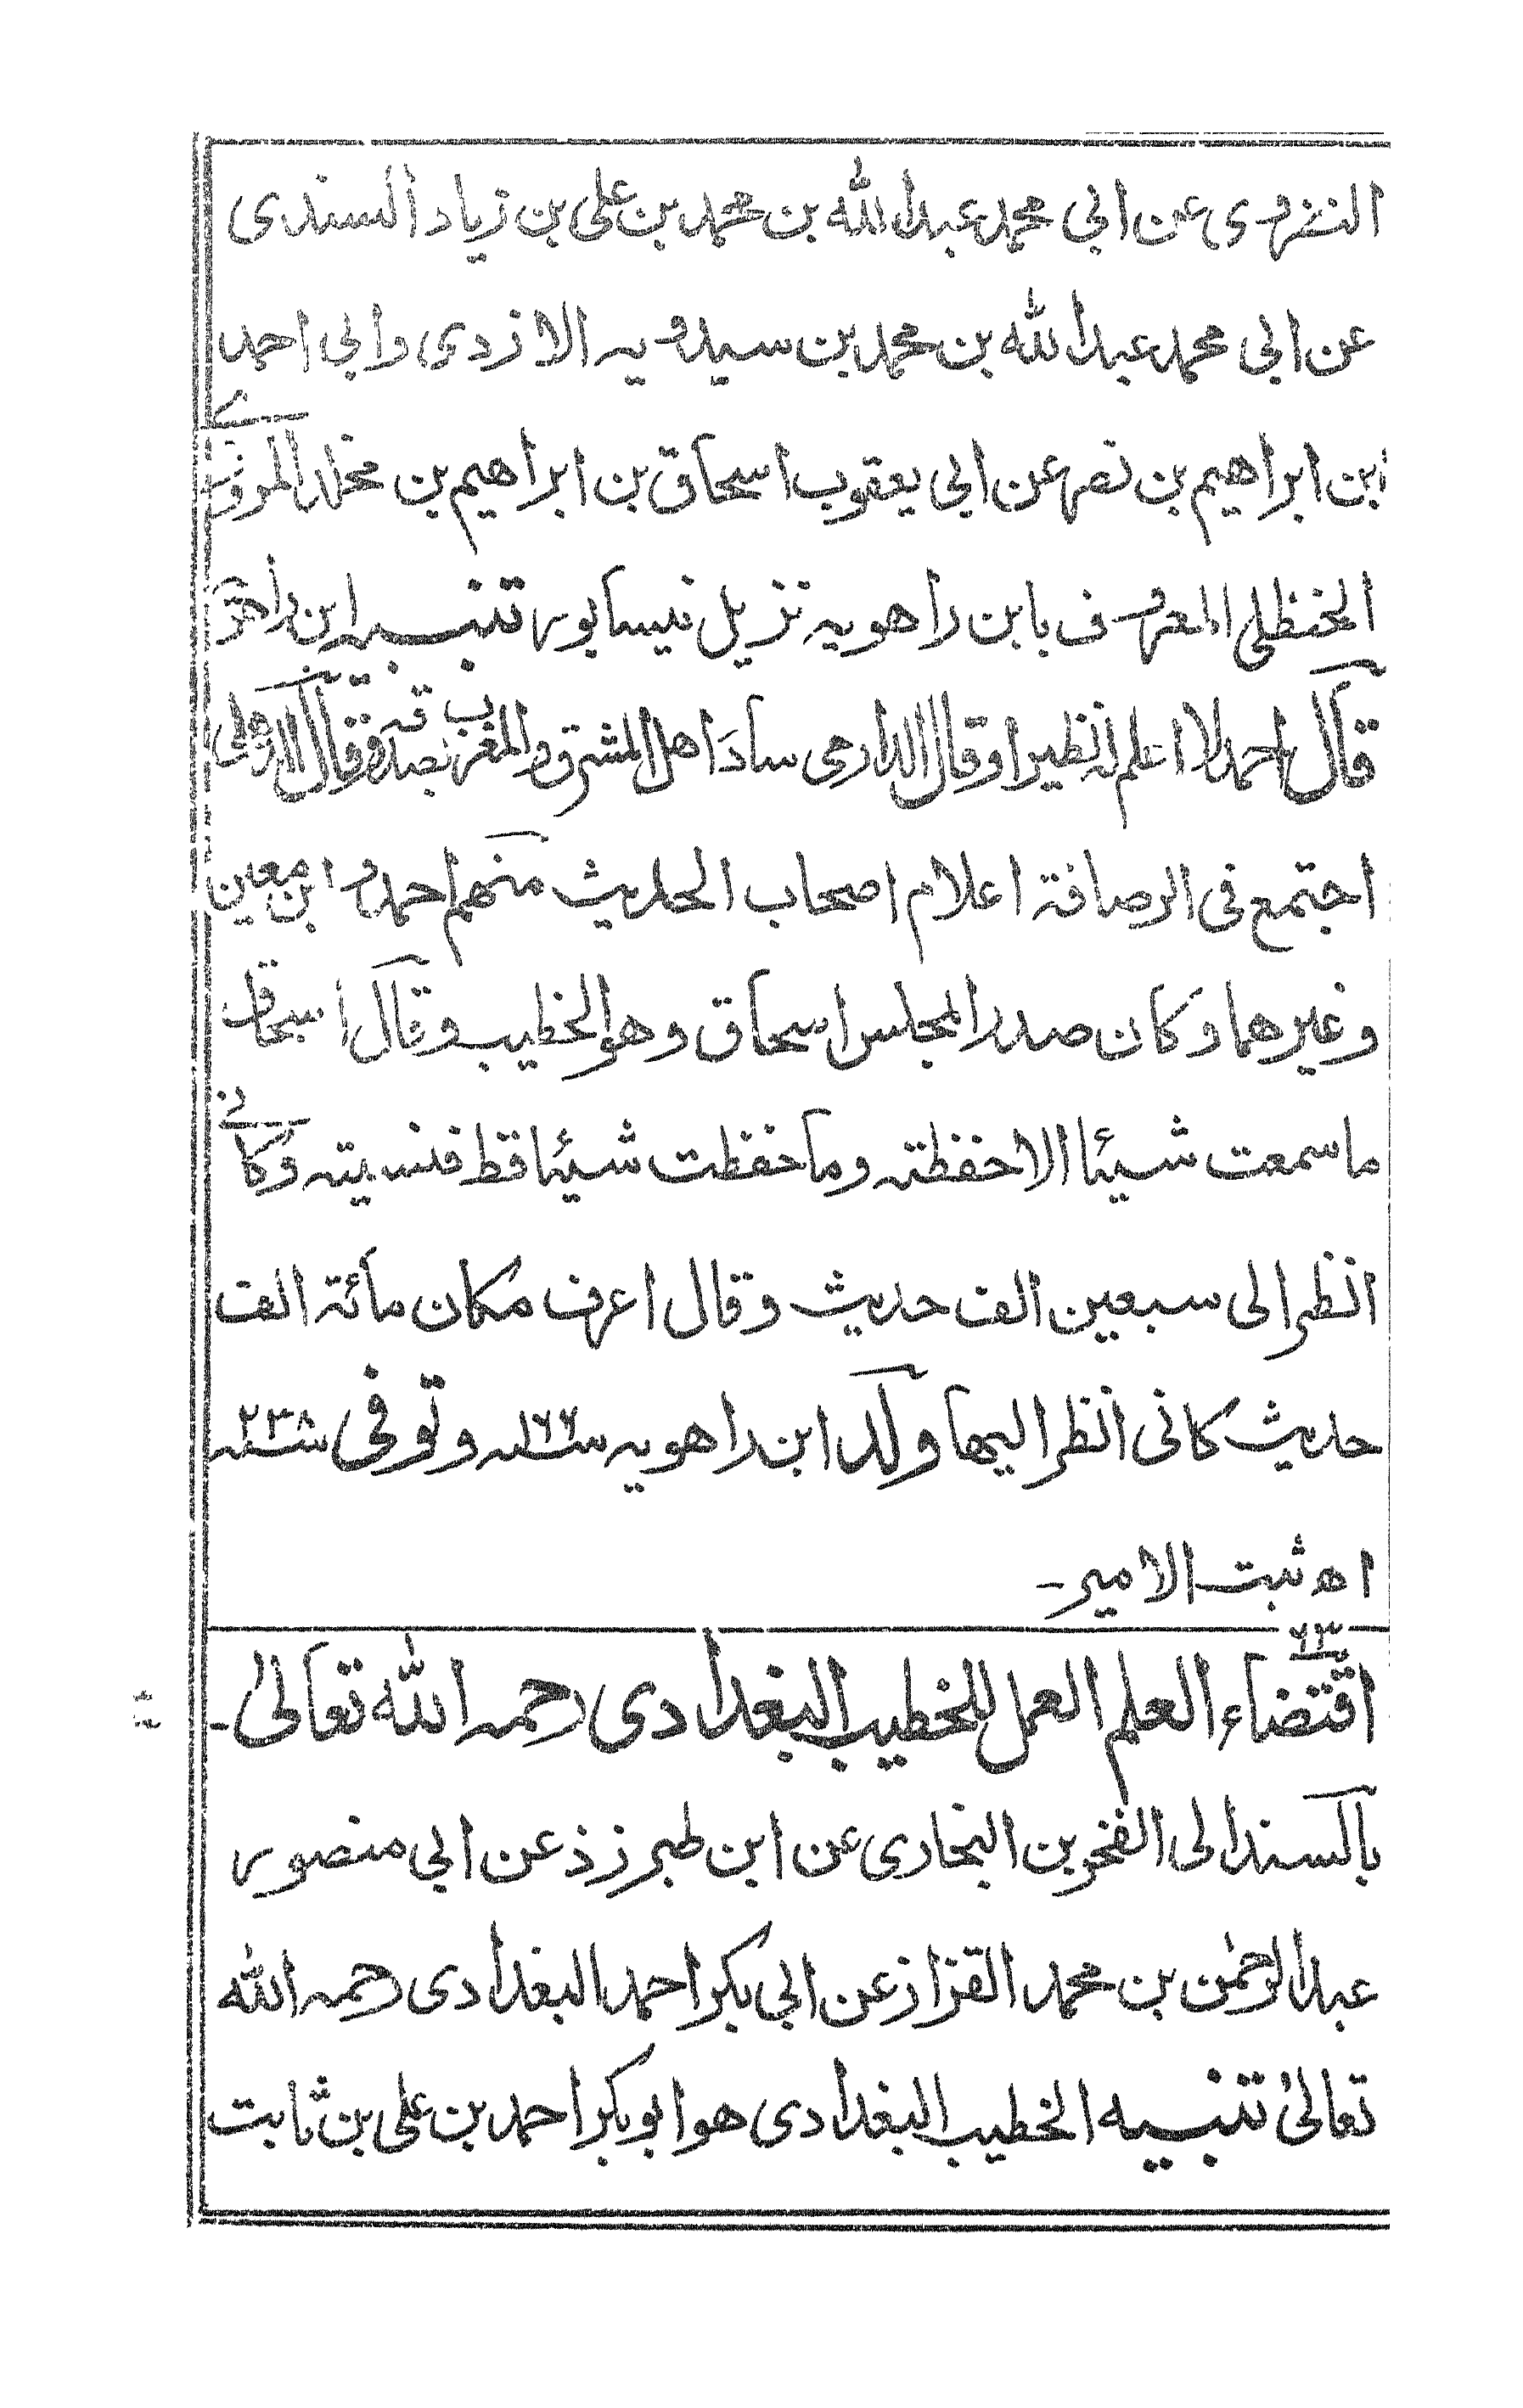 الننزوى عن ابي محمد عبد الله بن محمد بن على بن زياد السندى
عن ابي محمد عبد الله بن محمد بن سيدويه الازدى وابي احمد
ابن ابراهيم بن نصر عن ابي يعقوب اسحاق بن ابراهيم بن مخلد المروزي
الحنظلي المعروف بابن راهويه نزيل نيسابور تنبيه ابن راهويه
قال احمد لا اعلم له نظيرا وقال الدارمى ساد اهل المشرق والمغرب بصدقه وقال الذهلى
اجتمع فى الرصافة اعلام اصحاب الحديث منهم احمد وابن معين
وغيرهما وكان صدر المجلس اسحاق وهو الخطيب وقال اسحاق
ما سمعت شيئا الا حفظته وما حفظت شيئا قط فنسيته وكاني
انظر الى سبعين الف حديث وقال اعرف مكان مائة الف
حديث كانى انظر اليها ولد ابن راهويه سنة ١٦٦ وتوفى سنة ٢٣٨
اه ثبت الامير-
٧٣
اقتضاء العلم العمل للخطيب البغدادى رحمه الله تعالىٰ-
بالسند الى الفخر بن البخارى عن ابن طبرزذ عن ابي منصور
عبد الرحمٰن بن محمد القزاز عن ابي بكر احمد البغدادى رحمه الله
تعالىٰ تنبيه الخطيب البغدادى هو ابو بكر احمد بن على بن ثابت